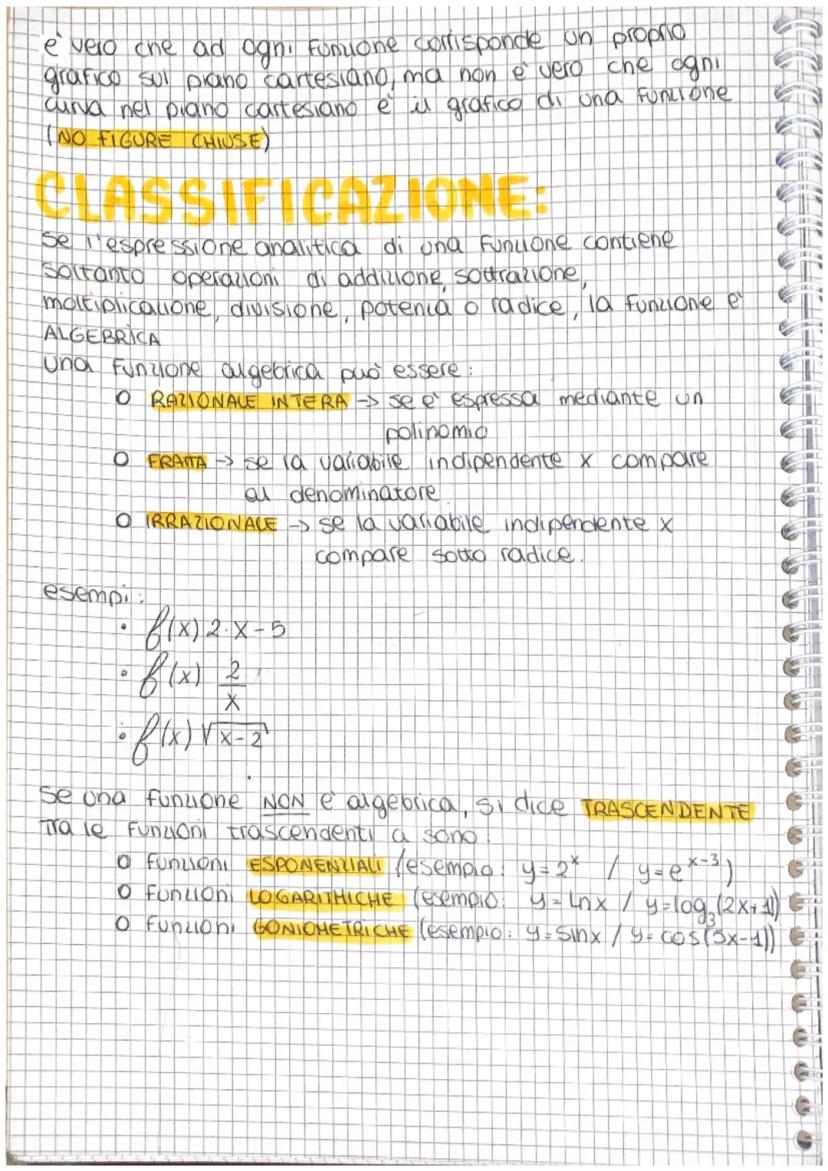 è vero che ad ogni funzione corrisponde un proprio
grafico sul piano cartesiano, ma non è vero che ogni
curva nel piano cartesiano è il grafico di una funzione
(NO FIGURE CHIUSE)
CLASSIFICAZIONE:
se l'espressione analitica di una funzione contiene
soltanto operazioni di addizione, sottrazione,
moltiplicazione, divisione, potenza o radice, la funzione è
ALGEBRICA
una funzione algebrica può essere:
O RAZIONALE INTERA -> se è espressa mediante un
polinomio
O FRATTA -> se la variabile indipendente x compare
al denominatore.
O IRRAZIONALE -> se la variabile indipendente x
compare sotto radice.
esempi:
• f(x) 2·x-5
• f(x) 2/x
• f(x) √x-2
se una funzione NON è algebrica, si dice TRASCENDENTE
Tra le funzioni trascendenti ci sono:
O funzioni ESPONENZIALI (esempio: y=2ˣ / y=eˣ⁻³)
O funzioni LOGARITMICHE (esempio: y=lnx / y=log₃(2x+1))
O funzioni GONIOMETRICHE (esempio: y=sinx / y=cos(3x-1))